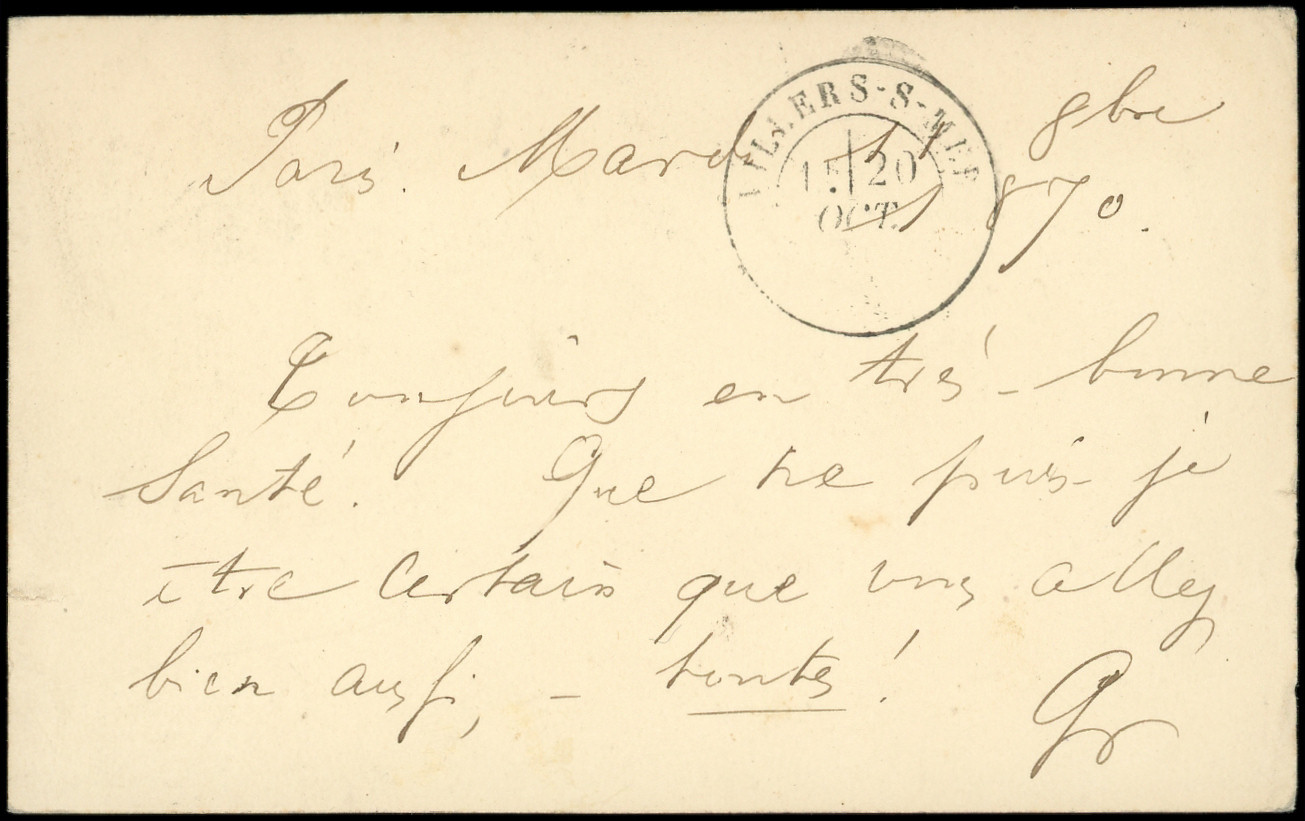 Paris. Mardi 11 8bre
1870.
VILLERS-S-MER
15 20
OCT.
Toujours en très-bonne
Santé. Que ne puis-je
être certain que vous allez
bien aussi, - toutes!